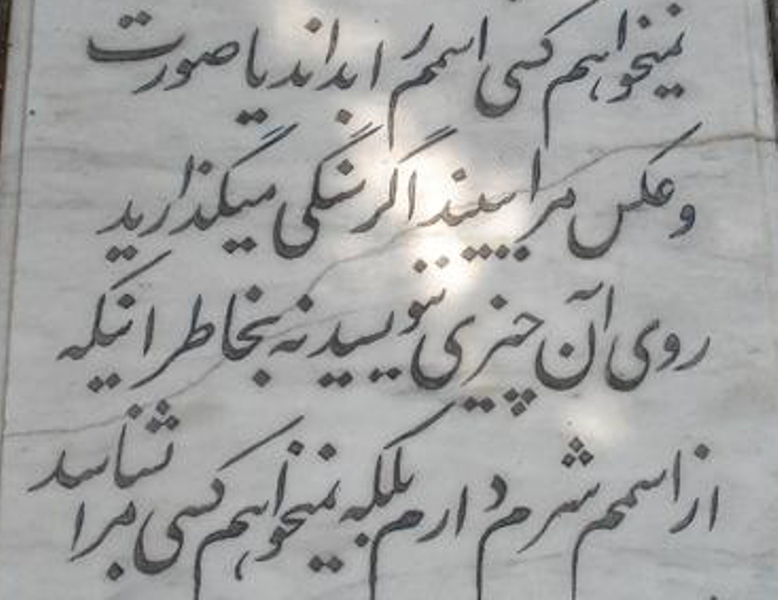 نمیخواهم کسی اسمم را بداند یا صورت
و عکس مرا ببیند اگر سنگی میگذارید
روی آن چیزی ننویسید نه بخاطر اینکه
از اسمم شرم دارم بلکه نمیخواهم کسی مرا بشناسد